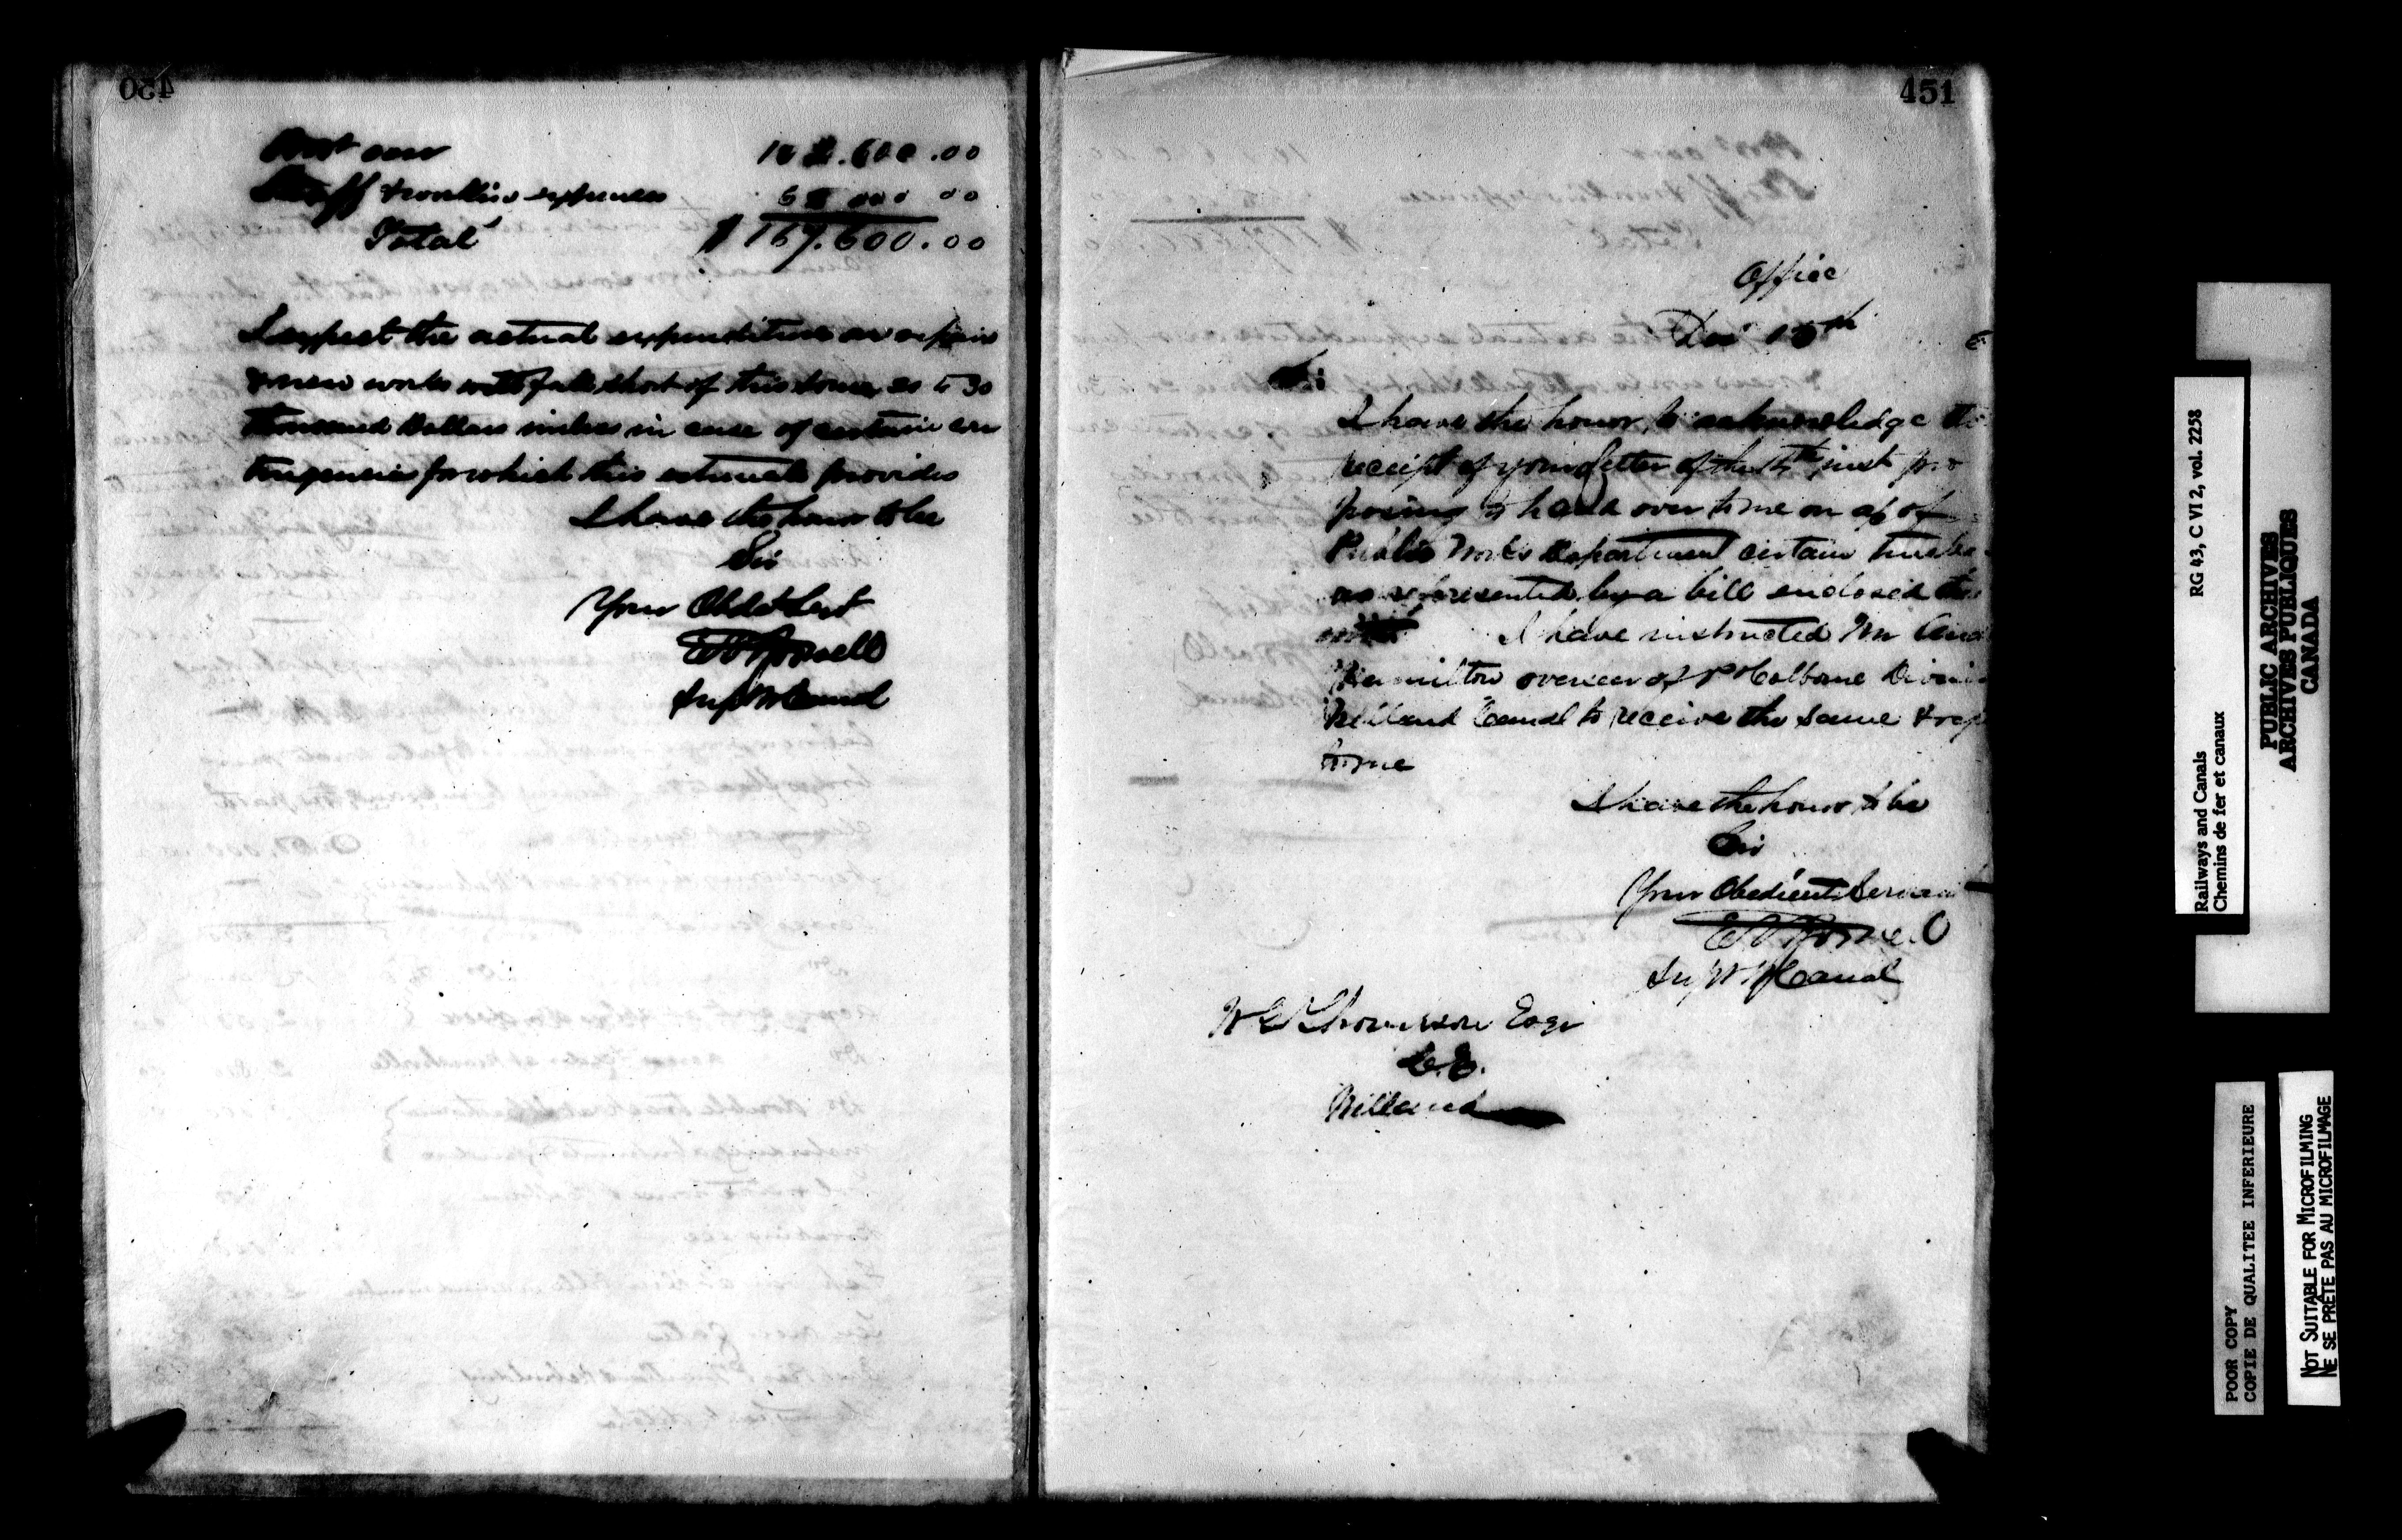 450
over .600.00
Staff & working expenses 000 00
Total $ 167.600.00
I expect the actual expenditure on repairs
& new works will fall short of this some 20 to 30
thousand Dollars unless in case of certain con
tingencies for which this estimate provides
I have the honor to be
Sir
Your Obdt Sert
Sup W Canal
451
Office
Dec 15th
Sir
I have the honor to acknowledge the
receipt of your letter of the inst pro
posing to hand over to me on a/c of
Public Works Department certain
as represented by a bill enclosed
I have instructed Mr
Hamilton overseer of Pt Colborne Divisi
Welland Canal to receive the same &
to me
I have the honor to be
Sir
Your Obedient Servant
Sup W Canal
W G Thompson Esqr
C.E.
Welland
Railways and Canals RG 43, C VI 2, vol. 2258
Chemins de fer et canaux
PUBLIC ARCHIVES
ARCHIVES PUBLIQUES
CANADA
POOR COPY
COPIE DE QUALITEE INFERIEURE
NOT SUITABLE FOR MICROFILMING
NE SE PRÊTE PAS AU MICROFILMAGE